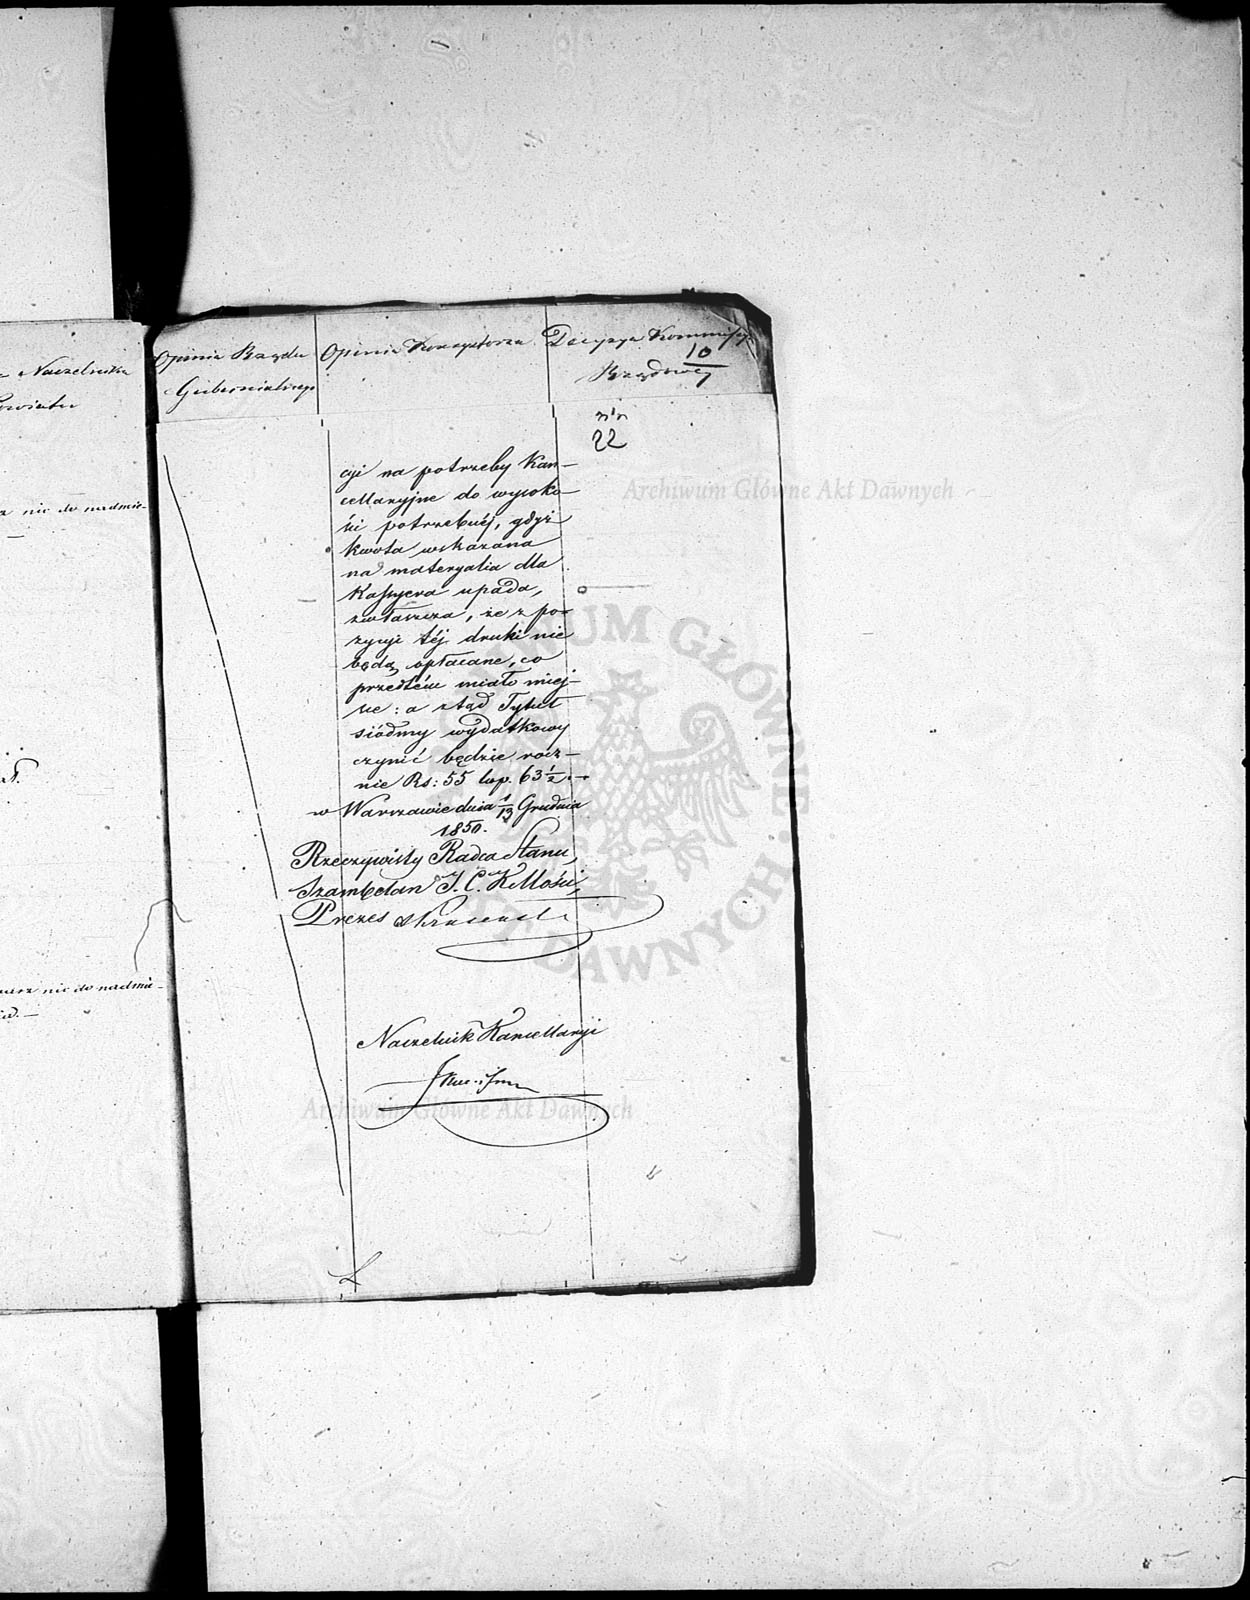 Naczelnika
Powiatu
nic do nadmie-
nic do nadmie-
Opinia Rządu
Gubernialnego
Opinia Konsystorza
Decyzya Kommissyi
Rządowej
10
22
cyi na potrzeby Kan-
cellaryjne do wysoko-
ści potrzebnéj, gdyż
kwota wskazana
na materyalia dla
Kassyera upada,
zwłaszcza, że z po-
zycyi téj druki nie
będą opłacane, co
przedtém miało miej-
sce: a ztąd Tytuł
siódmy wydatkowy
czynić będzie rocz-
nie Rs: 55 kop. 63 1/2.
w Warszawie dnia 1/13 Grudnia
1850.
Rzeczywisty Radca Stanu,
Szambelan J. C. K Mości,
Prezes
Naczelnik Kancellaryi
Archiwum Główne Akt Dawnych
ARCHIWUM GŁÓWNE AKT DAWNYCH
Archiwum Główne Akt Dawnych